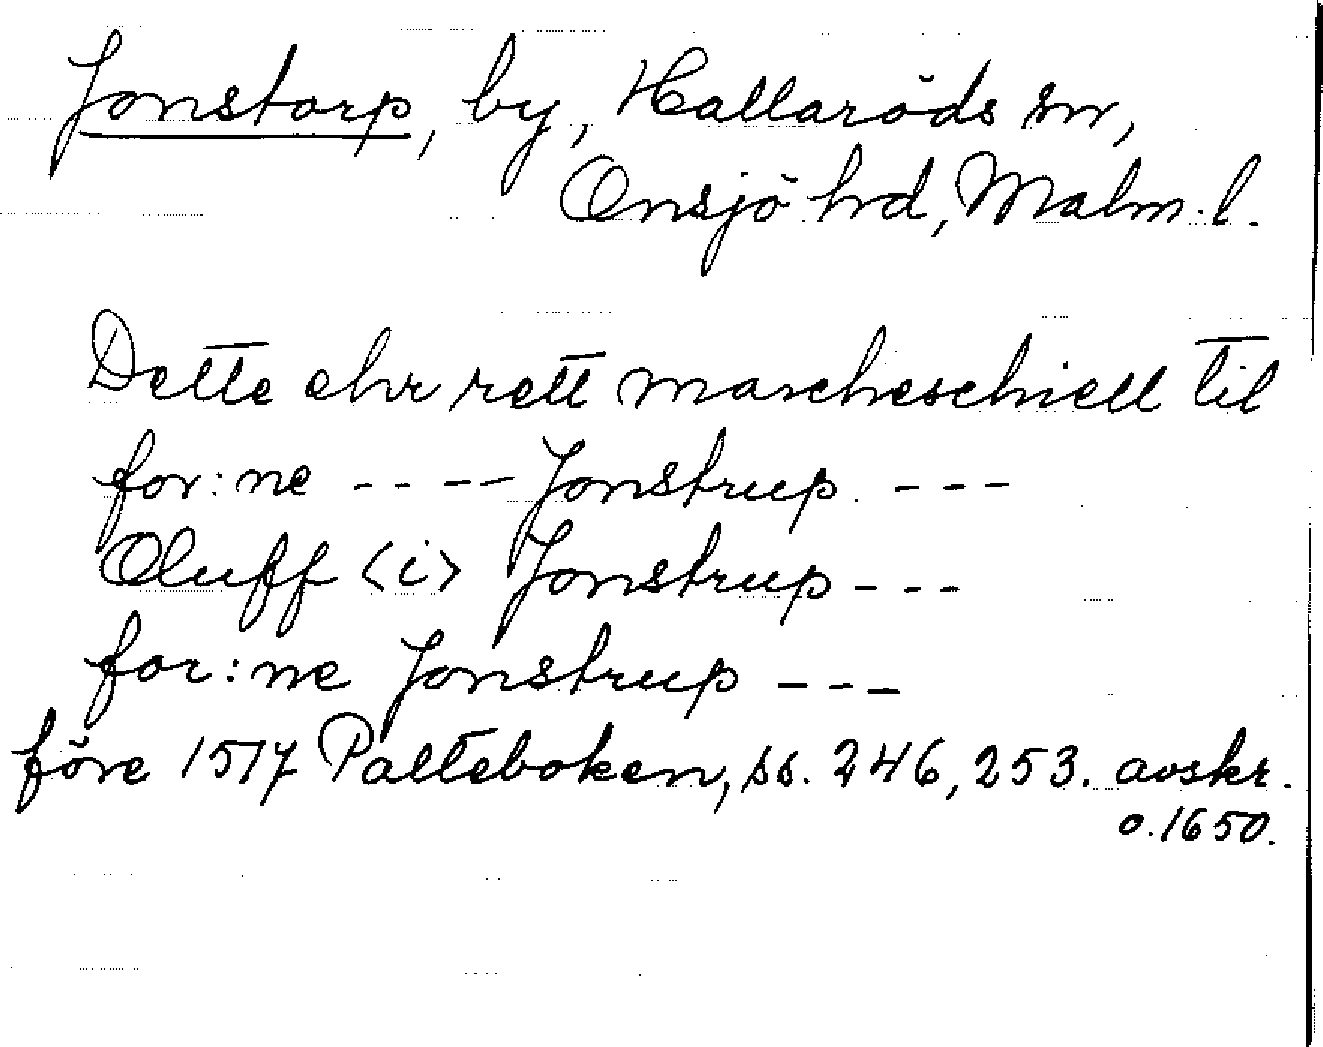 Jonstorp, by, Hallaröds sn,
Onsjö hrd, Malm. l.
Dette ehr rett marcheschiell til
for:ne ---- Jonstrup. ---
Oluff <i> Jonstrup ---
for:ne Jonstrup ---
före 1517 Palteboken, ss. 246, 253. avskr.
o. 1650.